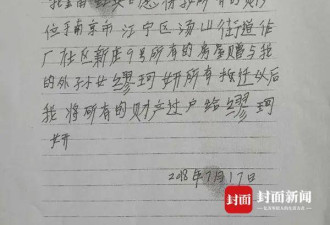 位于南京市江宁区汤山街道作
厂社区新庄9号所有的房屋赠与我
的外孙女缪珂妍所有 拆迁以后
我将所有的财产过户给缪珂
妍
2018年7月17日
封面 封面新闻